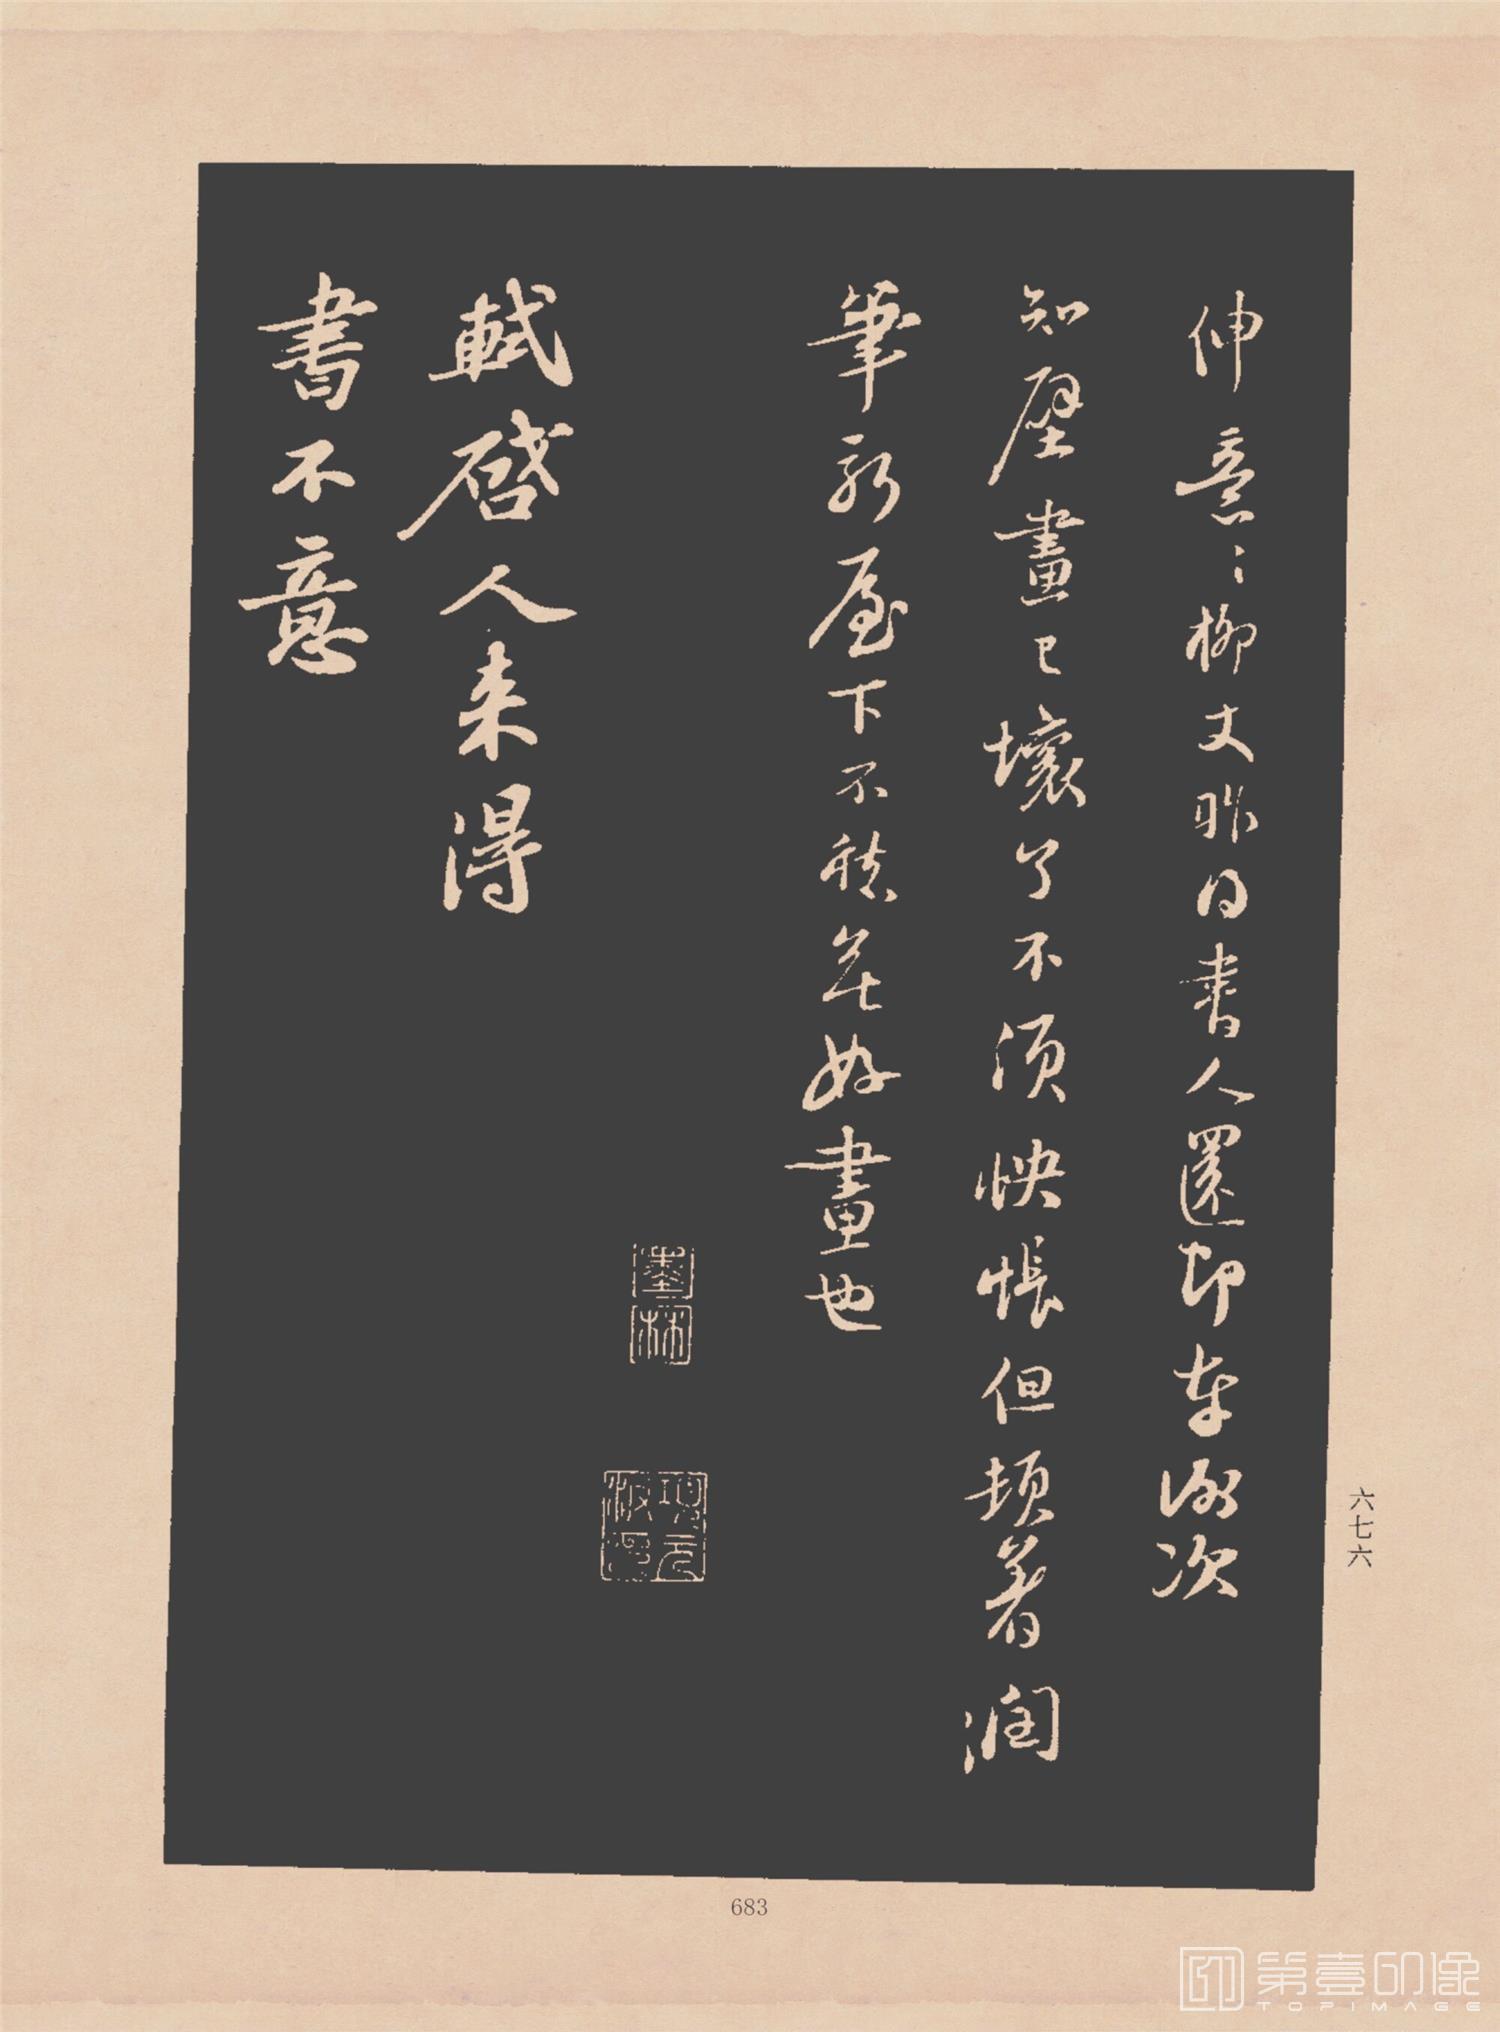 伸意〻柳丈昨得書人還即奉謝次
知壁畫已壞了不須怏悵但頓著潤
筆新屋下不愁無好畫也
墨林
項元汴印
軾啓人來得
書不意
六七六
683
第壹印像
TOPIMAGE